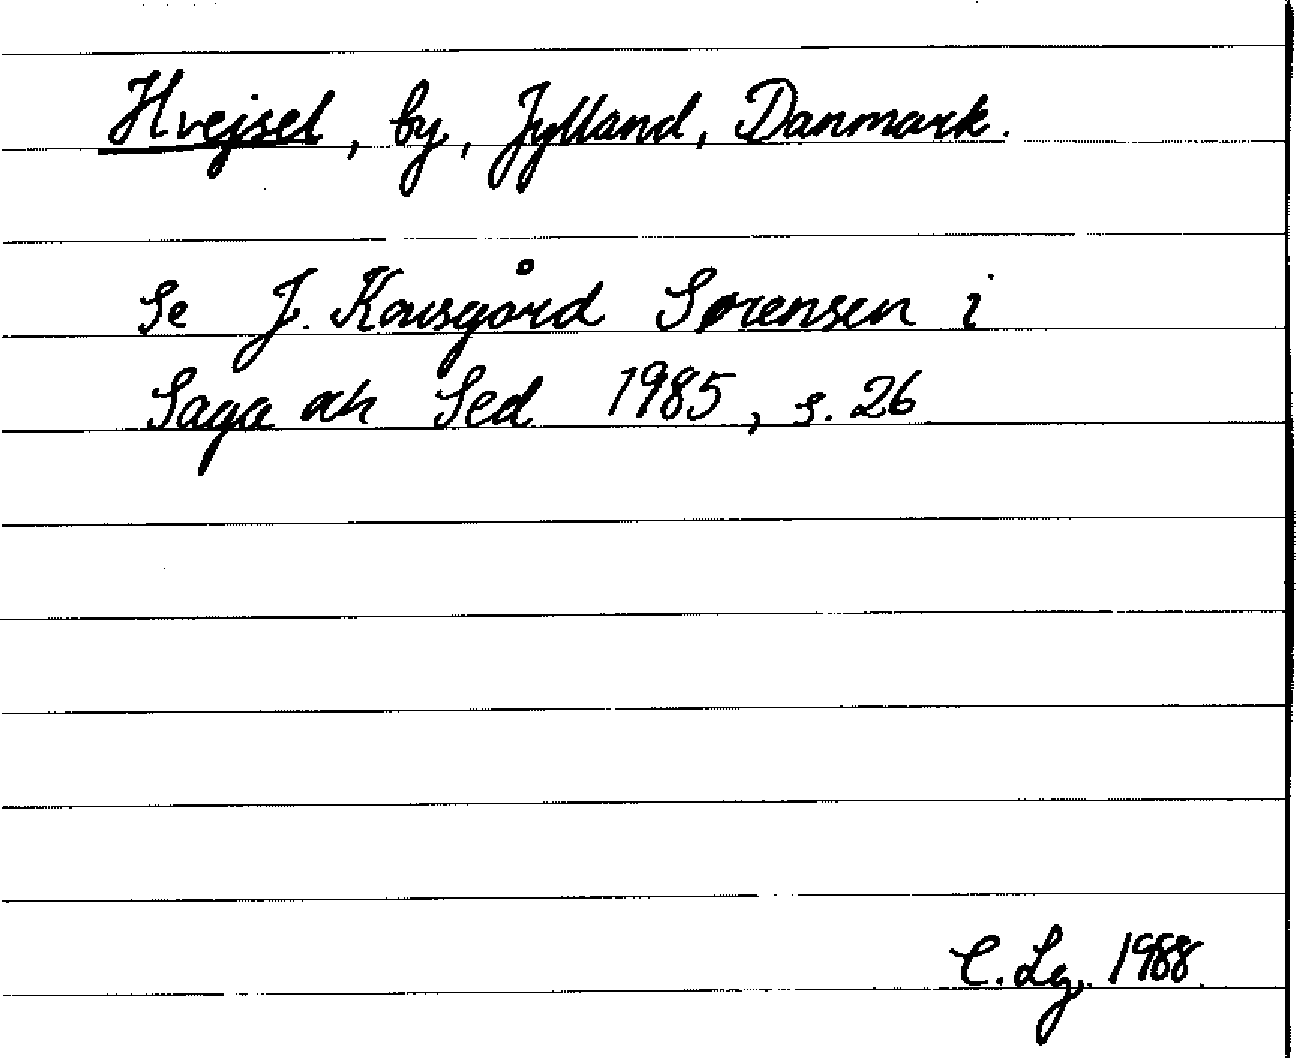 Hvejsel, by, Jylland, Danmark.
Se J. Kousgård Sørensen i
Saga och Sed 1985, s. 26
C. Lg. 1988.